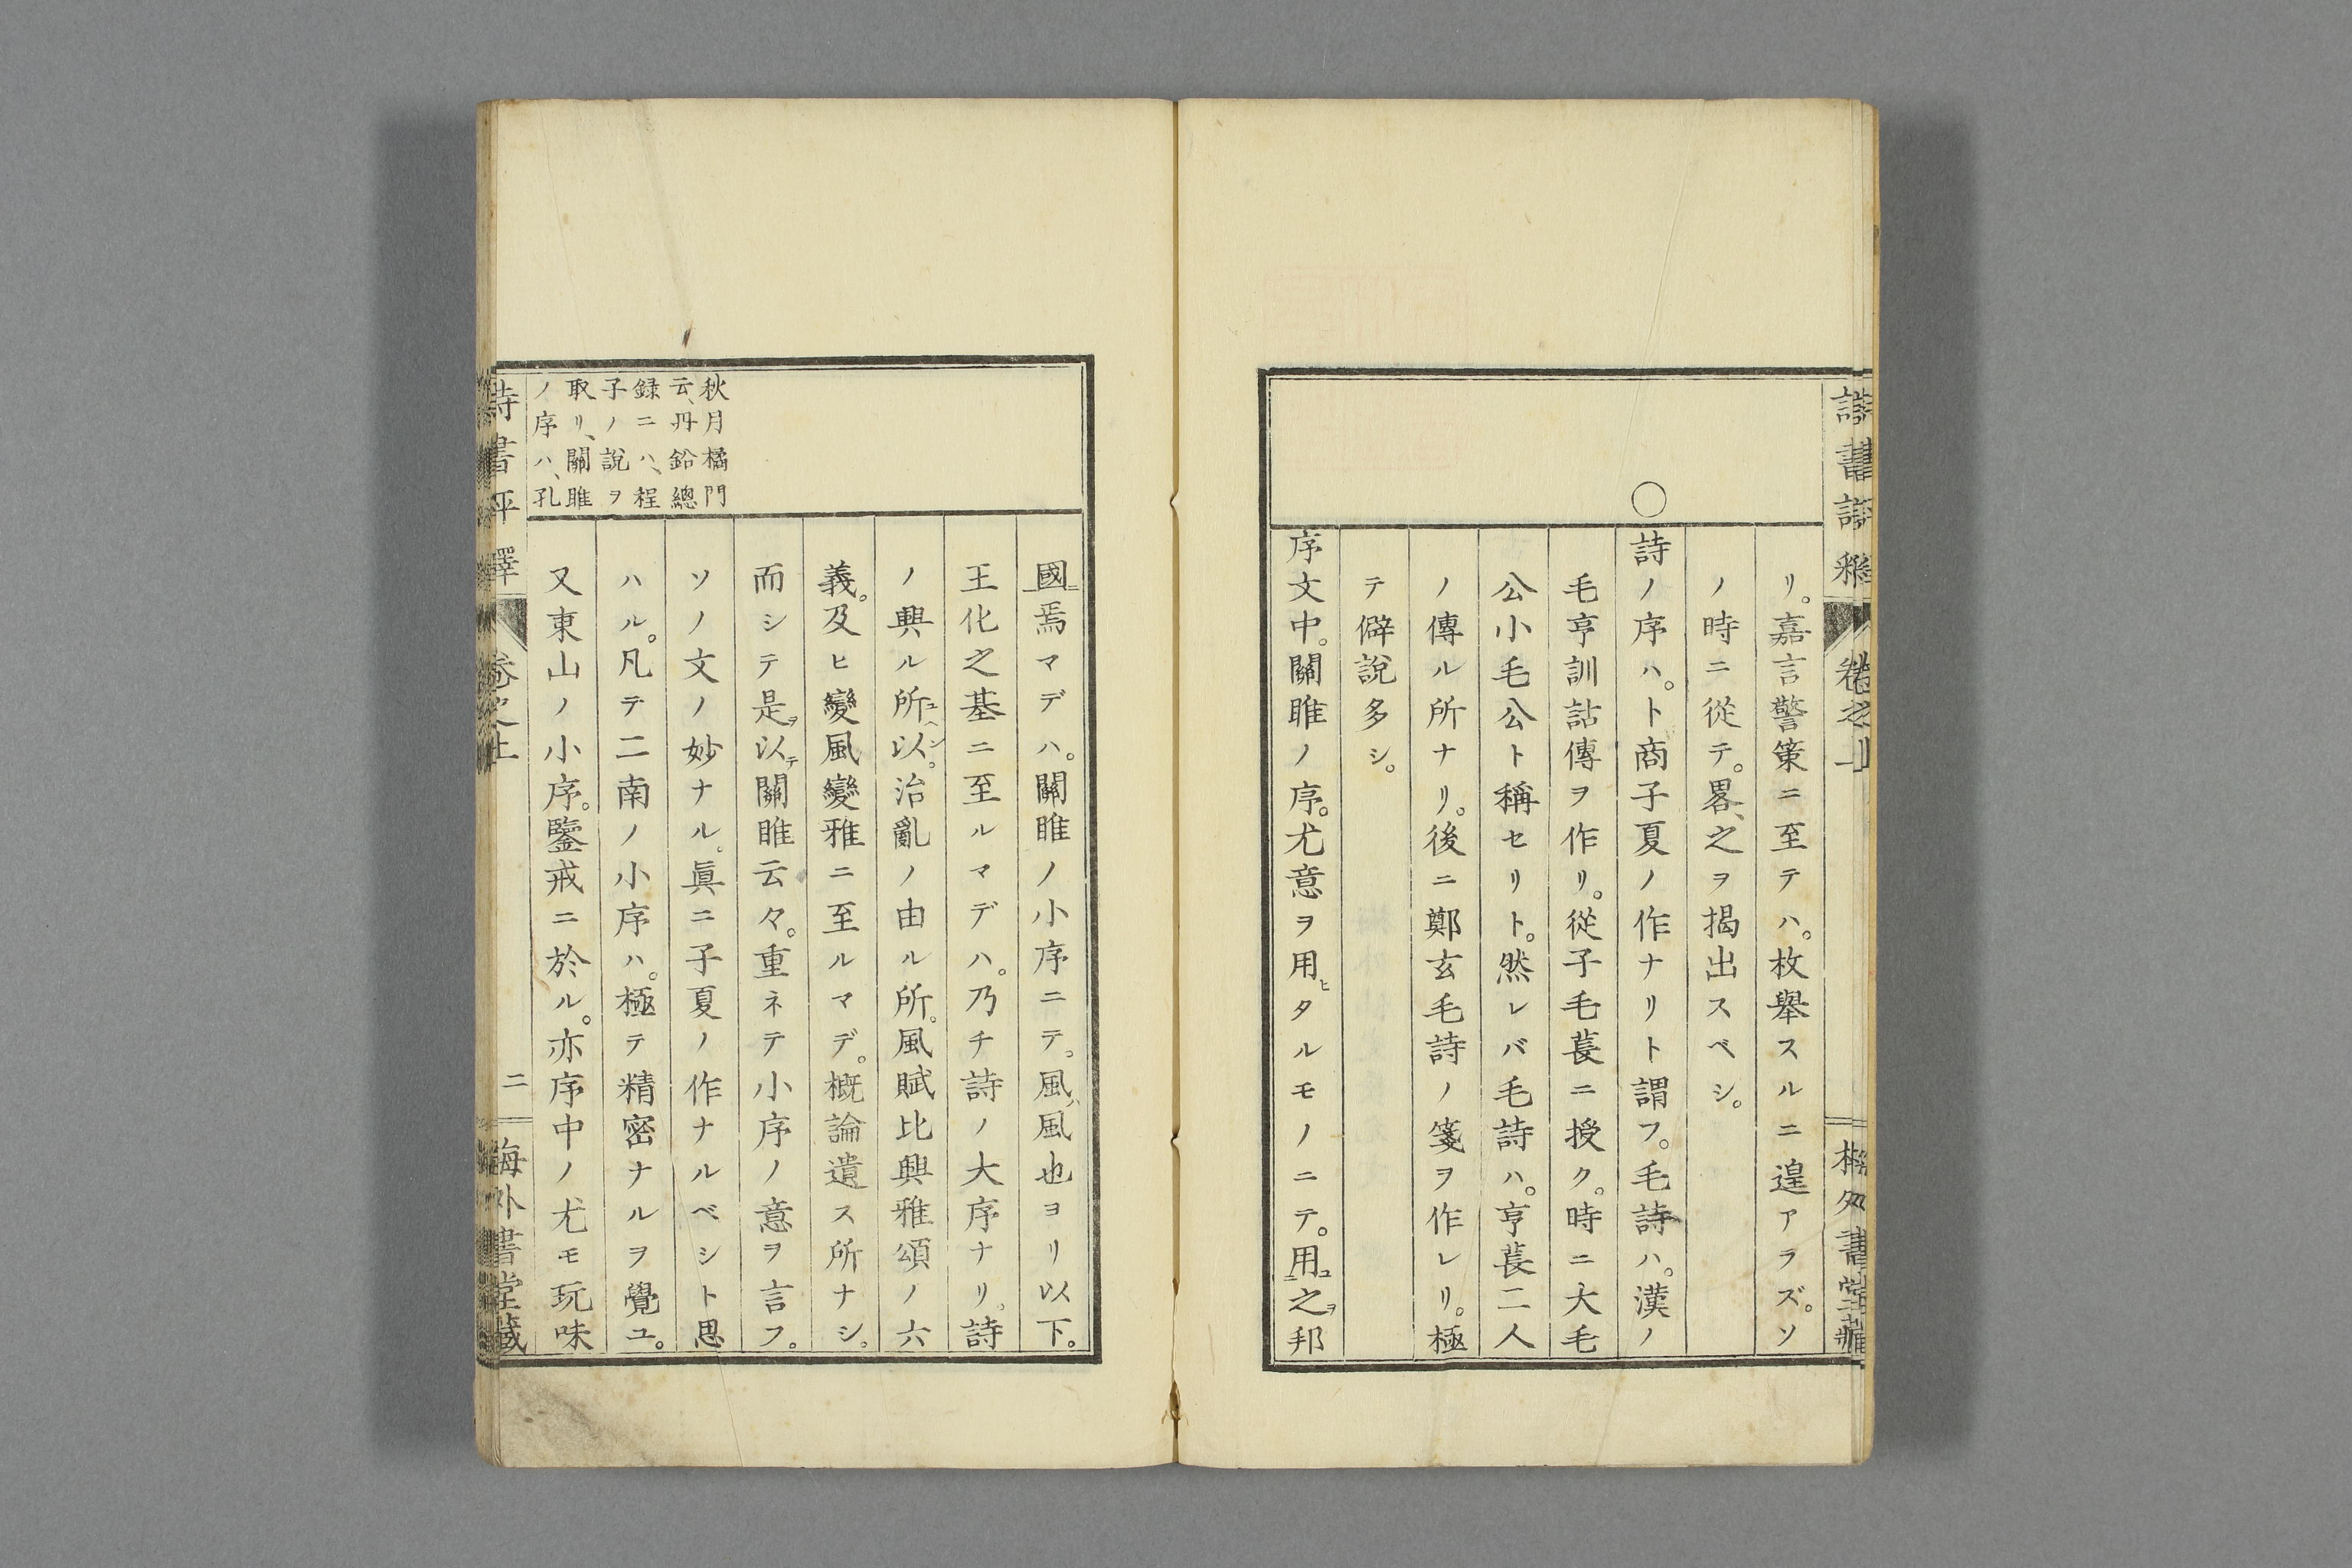 リ。嘉言警策ニ至テハ。枚舉スルニ遑アラズ。ソ
ノ時ニ從テ。畧、之ヲ揭出スベシ。
○詩ノ序ハ。卜商子夏ノ作ナリト謂フ。毛詩ハ。漢ノ
毛亨訓詁傳ヲ作リ。從子毛萇ニ授ク。時ニ大毛
公小毛公ト稱セリト。然レバ毛詩ハ。亨萇二人
ノ傳ル所ナリ。後ニ鄭玄毛詩ノ箋ヲ作レリ。極
テ僻說多シ。
序文中。關雎ノ序。尤意ヲ用ヒタルモノニテ。用ユ二之ヲ邦
國ニ一焉マデハ。關雎ノ小序ニテ。風ハ風也ヨリ以下。
王化之基ニ至ルマデハ。乃チ詩ノ大序ナリ。詩
ノ興ル所ユヘン以。治亂ノ由ル所。風賦比興雅頌ノ六
義。及ヒ變風變雅ニ至ルマデ。概論遺ス所ナシ。
而シテ是ヲ以テ關雎云々。重ネテ小序ノ意ヲ言フ。
ソノ文ノ妙ナル。眞ニ子夏ノ作ナルベシト思
ハル。凡テ二南ノ小序ハ。極テ精密ナルヲ覺ユ。
又東山ノ小序。鑒戒ニ於ル。亦序中ノ尤モ玩味
秋月橘門
云、丹鉛總
録ニハ、程
子ノ說ヲ
取リ、關雎
ノ序ハ、孔
詩書評釋 卷之上 二 梅外書堂藏